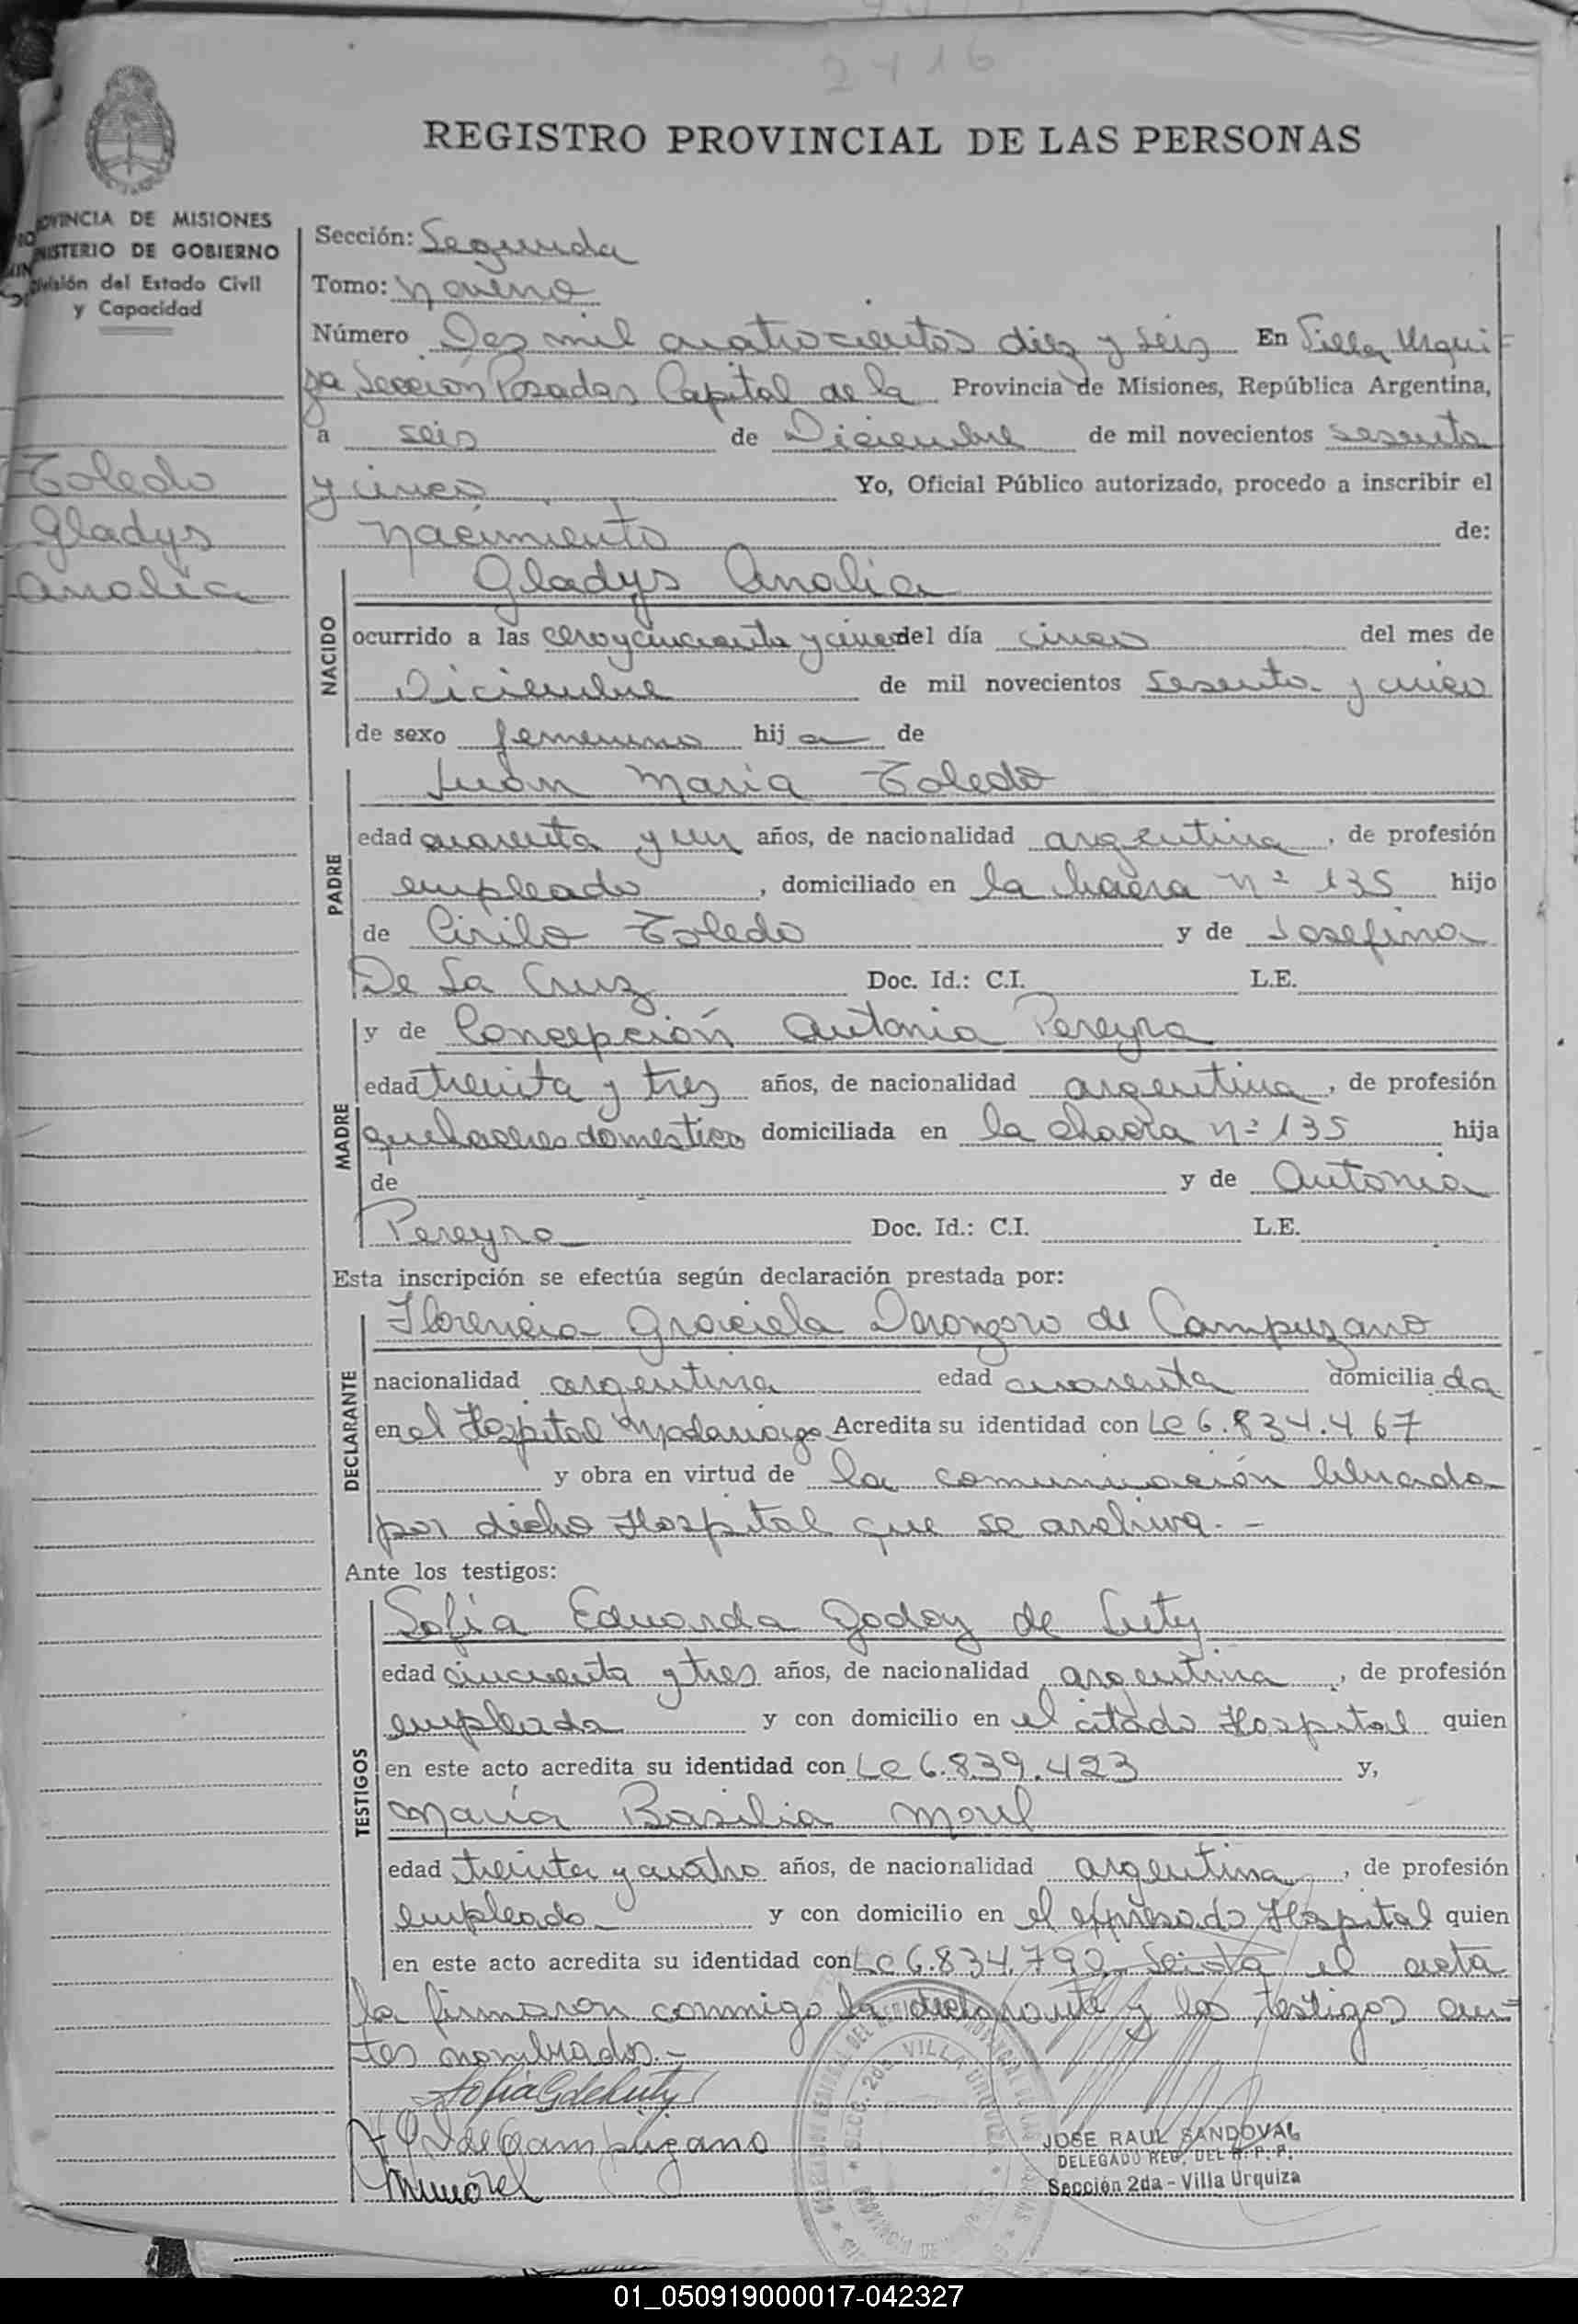 2416
REGISTRO PROVINCIAL DE LAS PERSONAS
PROVINCIA DE MISIONES
MINISTERIO DE GOBIERNO
División del Estado Civil
y Capacidad
Toledo
Gladys
Analia
Sección: Segunda
Tomo: Noveno
Número Dos mil cuatrocientos diez y seis En Villa Urqui
za Sección Posadas Capital de la Provincia de Misiones, República Argentina,
a seis de Diciembre de mil novecientos sesenta
y cinco Yo, Oficial Público autorizado, procedo a inscribir el
nacimiento de:
NACIDO
Gladys Analia
ocurrido a las cero y cincuenta y cinco del día cinco del mes de
Diciembre de mil novecientos sesenta y cinco
de sexo femenino hija de
PADRE
Juan Maria Toledo
edad cuarenta y un años, de nacionalidad argentina, de profesión
empleado, domiciliado en la chacra nº 135 hijo
de Cirilo Toledo y de Josefina
De La Cruz Doc. Id.: C.I. L.E.
MADRE
y de Concepción Antonia Pereyra
edad treinta y tres años, de nacionalidad argentina, de profesión
quehaceres domestico domiciliada en la chacra nº 135 hija
de y de Antonia
Pereyra Doc. Id.: C.I. L.E.
Esta inscripción se efectúa según declaración prestada por:
DECLARANTE
Florencia Graciela de Campuzano
nacionalidad argentina edad cuarenta domiciliada
en el Hospital Madariaga Acredita su identidad con LC 6.834.467
y obra en virtud de la comunicación librada
por dicho Hospital que se archiva.-
Ante los testigos:
TESTIGOS
Sofia Eduarda Godoy de Luty
edad cincuenta y tres años, de nacionalidad argentina, de profesión
empleada y con domicilio en el citado Hospital quien
en este acto acredita su identidad con LC 6.839.423 y,
Maria Basilia Morel
edad treinta y cuatro años, de nacionalidad argentina, de profesión
empleada y con domicilio en el expresado Hospital quien
en este acto acredita su identidad con LC 6.834.792 Leida el acta
la firmaron conmigo la declarante y los testigos an-
tes nombrados.-
Sofia G de Luty
de Campuzano
Morel
SECC. 2da. VILLA URQUIZA
JOSE RAUL SANDOVAL
DELEGADO REG. DEL R. P. P.
Sección 2da - Villa Urquiza
01_050919000017-042327